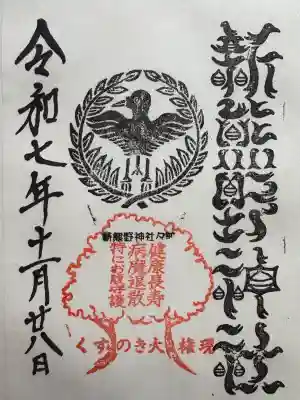 新熊野神社
新熊野神社々印
健康長寿
病魔退散
特にお腹守護
くすのき大権現
令和七年十一月廿八日